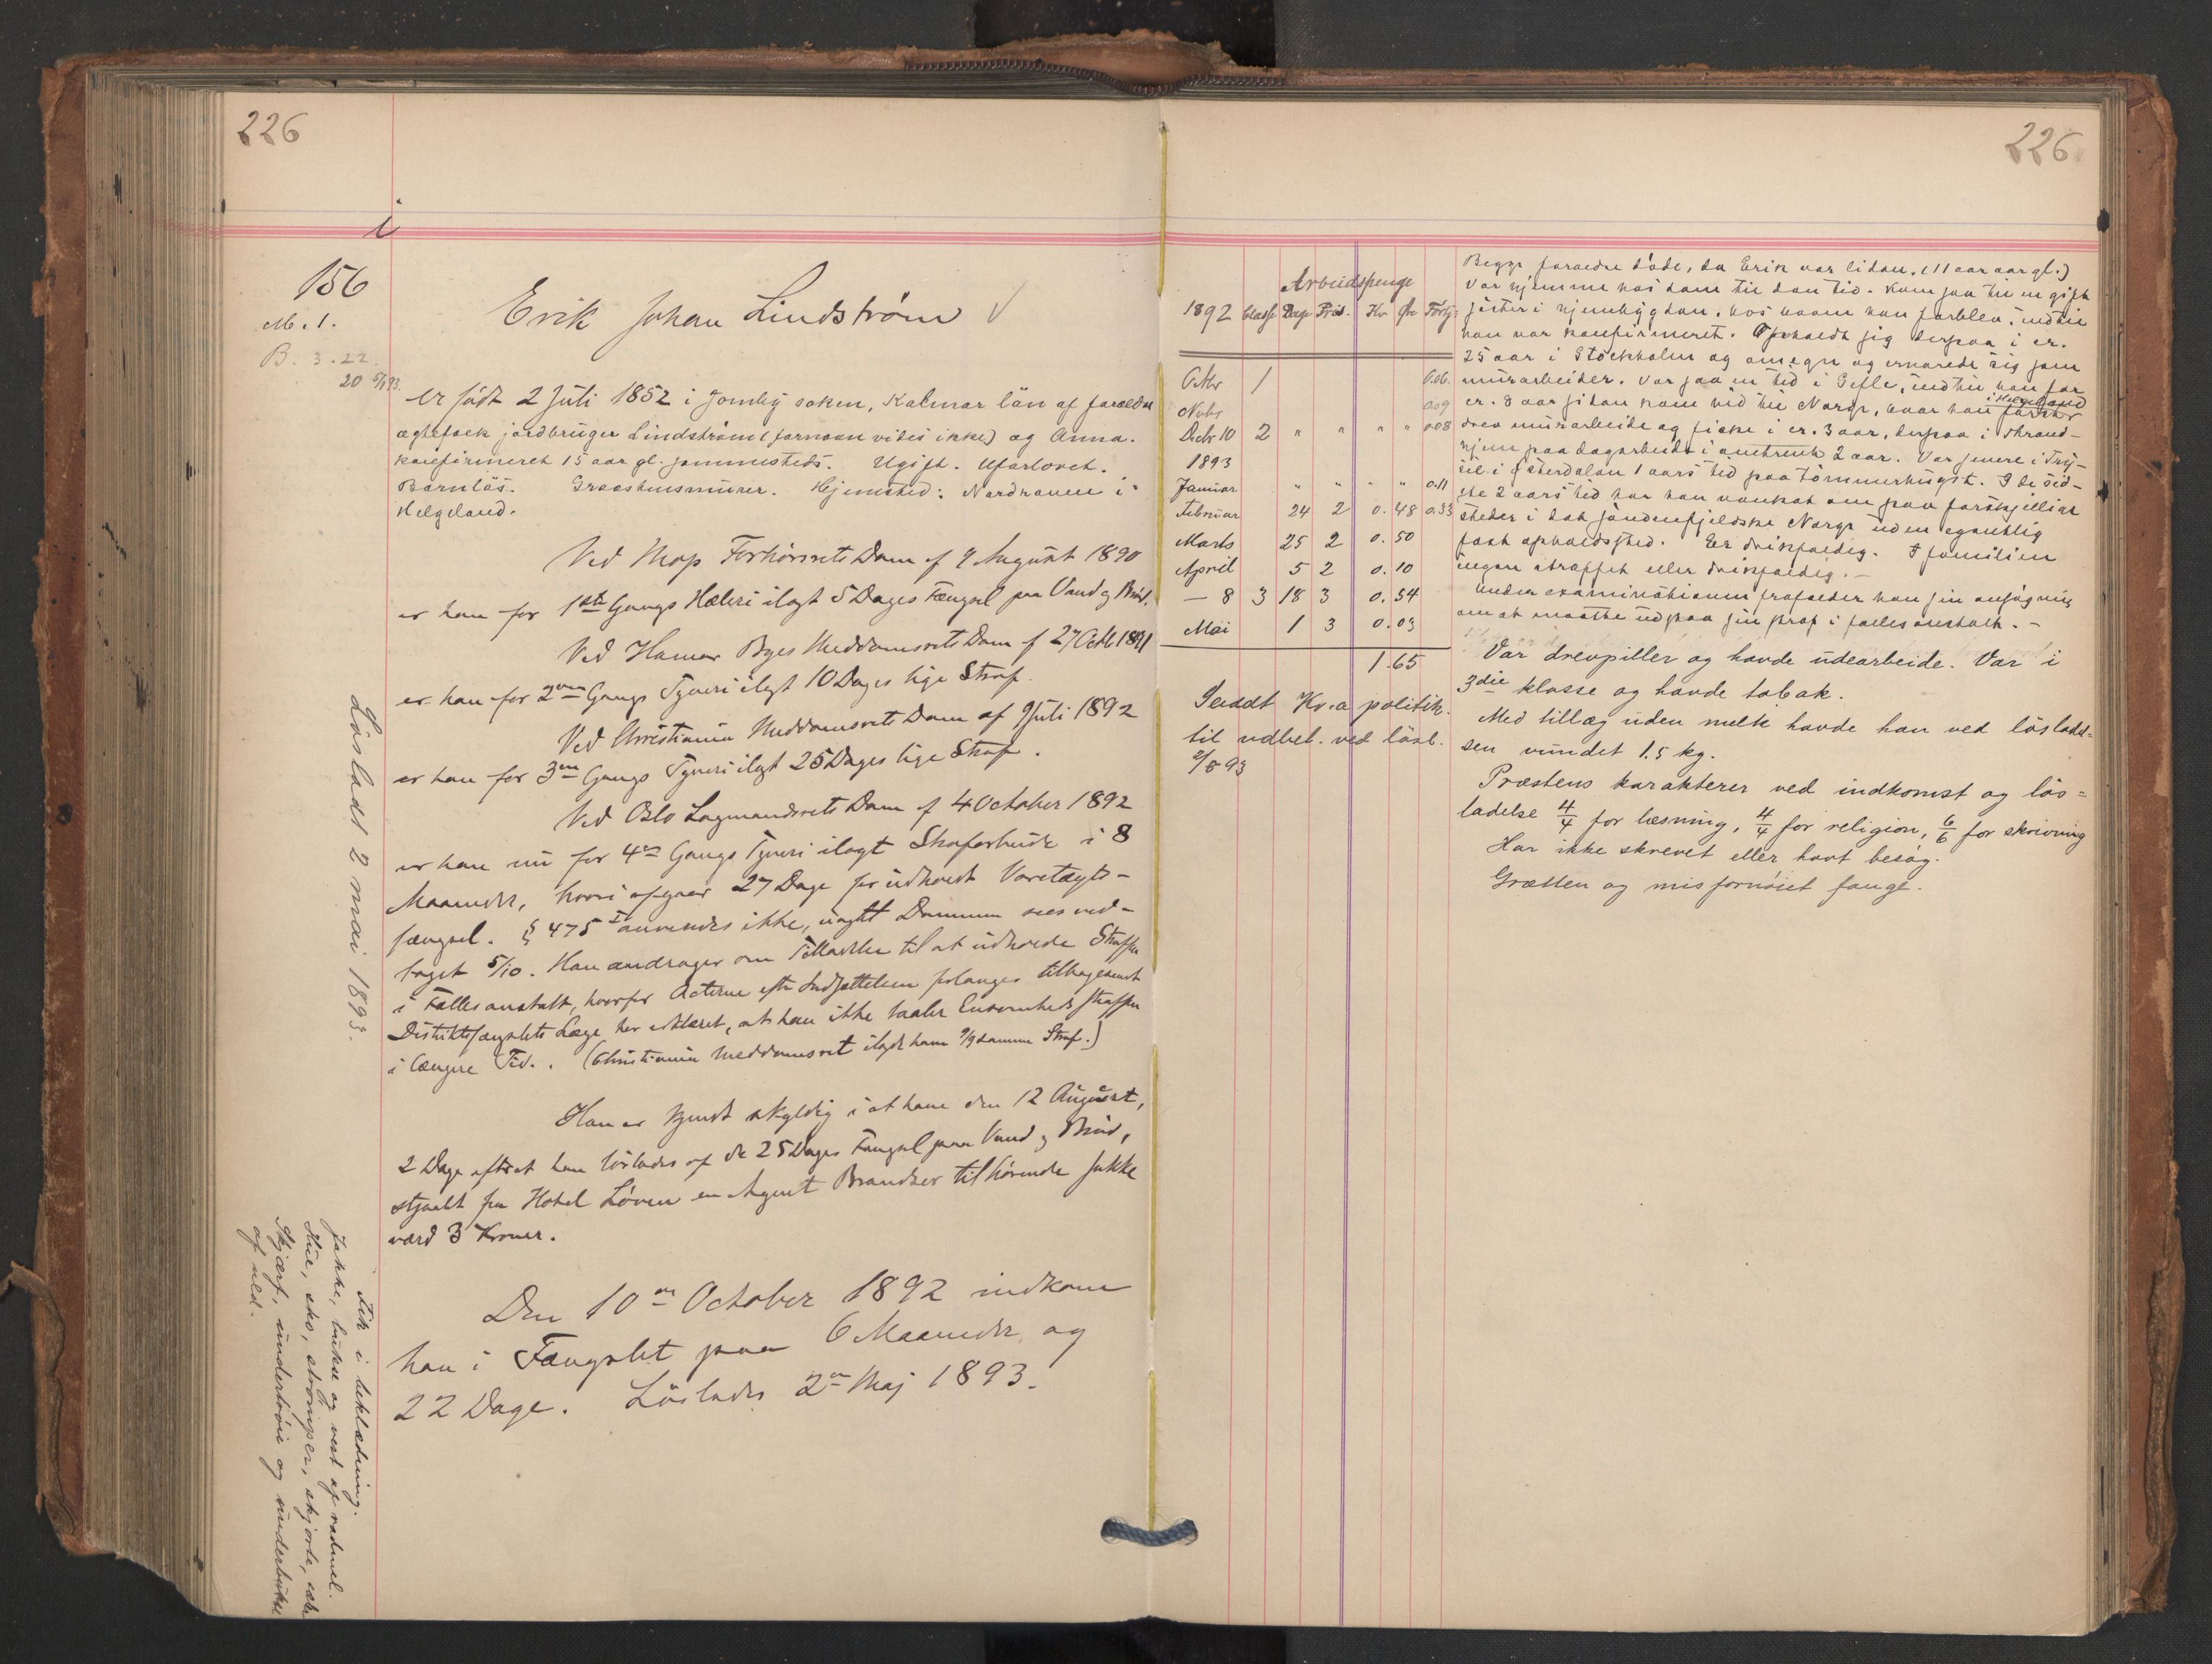 226
i
156
M. 1.
B. 3. 22.
20 5/1 93.
Erik Johan Lindstrøm
er født 2 Juli 1852 i Jomby soken, Kalmar län af foraeldre
ægtefolk jordbruger Lindström (fornavn vides ikke) og Anna.
Konfirmeret 15 aar gl. sammesteds. Ugift. Uforlovet.
Barnløs. Graastensmurer. Hjemsted: Nordranen i
Helgeland.
Ved Mops Forhørsrets Dom af 9 August 1890
er han for 1ste Gangs Hæleri ilagt 5 Dages Fængsel paa Vand og Brød.
Ved Hamar Byes Meddomsrets Dom af 27 Octbr 1891
er han for 2den Gangs Tyveri ilagt 10 Dages lige Straf.
Ved Christiania Meddomsrets Dom af 9 Juli 1892
er han for 3die Gangs Tyveri ilagt 25 Dages lige Straf.
Ved Oslo Lagmandsrets Dom af 4 October 1892
er han nu for 4de Gangs Tyveri ilagt Strafarbeide i 8
Maaneder, hvori afgaar 27 Dage for udholdt Varetægts-
fængsel. § 475 I anvendes ikke, Dommen sees ved-
taget 5/10. Han andrager om Tilladelse til at udholde Straffen
i Fællesanstalt, hvorfor Acterne efter Indsættelsen forlanges tilbagesendt
Distriktsfængslets Læge har erklæret, at han ikke taaler Ensomheds straffen
i længere Tid. . (Christiania Meddomsret ilagde ham 9/9 samme Straf.)
Han er kjendt skyldig i at have den 12 August,
2 Dage efter at han løslades af de 25 Dages Fængsel paa Vand og Brød,
stjaalet fra Hotel Løven en Agent Brandser tilhørende Jakke
værd 3 Kroner.
Den 10de October 1892 indkom
han i Fængslet paa 6 Maaneder og
22 Dage. Löslades 2den Maj 1893.
Lösladt 2 mai 1893.
Fik i beklædning:
Jakke, bukse og vest af vadmel.
Hue, sko, strømper, skjorte,
Skjærf, undertröie og underbukse
af uld.
226
Arbeidspenge
1892 Classe Dage Præd. Kr. Øre Fortj:
Octbr 1 0.06.
Novbr 0.09
Decbr 10 2 " " " " 0.08
1893
Januar " " " " 0.11
Februar 24 2 0.48 0.33
Marts 25 2 0.50
April 5 2 0.10
— 8 3 18 3 0.54
Mai 1 3 0.03
1.65
Sendt Kr.a politik.
til udbet. ved lösl.
2/5 93
Begge foraeldre døde, da Erik var liden. (11 aar aargl.)
Var hjemme hos dem til den tid. Kom saa til en gift
söster i hjembygden, hos hvem han forblev, indtil
han var konfirmeret. Opholdt sig derpaa i cr.
25 aar i Stockholm og omegn og ernærede sig som
murarbeider. Var saa en tid i Gefle, indtil han for
cr. 8 aar siden kom ned til Norge, hvor han först
i Helgeland
drev murarbeide og fiske i cr. 3 aar, derpaa i Thrond-
hjem paa dagarbeide i omtrent 2 aar. Var senere i Try-
sil i Østerdalen 1 aars tid paa tømmerhugst. I de sid-
ste 2 aars tid har han vanket om paa forskjellige
steder i det søndenfjeldske Norge uden egentlig
fast opholdssted. Er drikfældig. I familien
ingen straffet eller drikfældig. —
Under examinationen frafalder han sin ansøgning
om at maatte udstaa sin straf i fællesanstalt. —
Var drevpiller og havde udearbeide. Var i
3die klasse og havde tobak.
Med tillæg uden melk havde han ved lösladel-
sen vundet 1.5 kg.
Præstens karakterer ved indkomst og lös-
ladelse 4/4 for læsning, 4/4 for religion, 6/6 for skrivning
Har ikke skrevet eller havt besøg.
Grætten og misfornøiet fange.